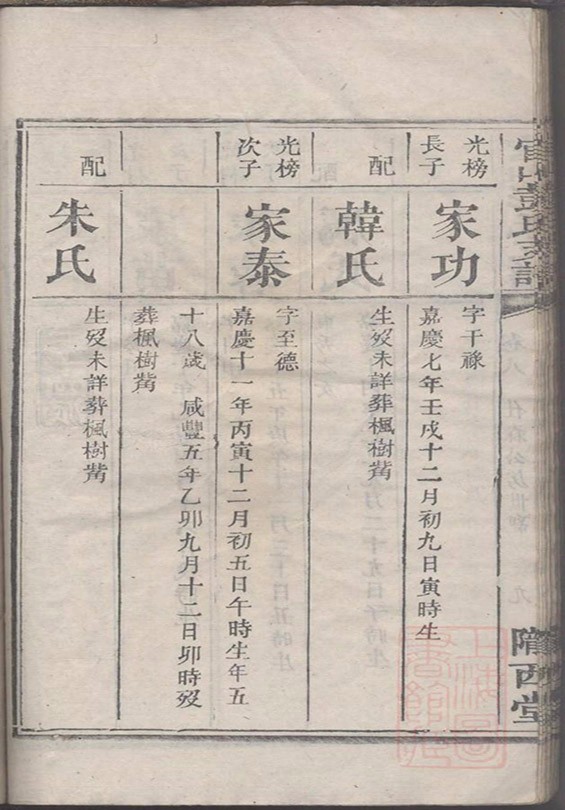 彭氏支譜
隴西堂
光榜
長子
家功
字干祿
嘉慶七年壬戌十二月初九日寅時生
配
韓氏
生歿未詳葬楓樹嘴
光榜
次子
家泰
字至德
嘉慶十一年丙寅十二月初五日午時生年五
十八歲 咸豐五年乙卯九月十二日卯時歿
葬楓樹嘴
配
朱氏
生歿未詳葬楓樹嘴